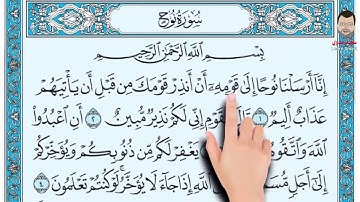 سُورَةُ نُوحٍ
بِسْمِ اللَّهِ الرَّحْمَٰنِ الرَّحِيمِ
إِنَّا أَرْسَلْنَا نُوحًا إِلَىٰ قَوْمِهِ أَنْ أَنذِرْ قَوْمَكَ مِن قَبْلِ أَن يَأْتِيَهُمْ
عَذَابٌ أَلِيمٌ ١ قَوْمِ إِنِّي لَكُمْ نَذِيرٌ مُّبِينٌ ٢ أَنِ اعْبُدُوا
اللَّهَ وَاتَّقُوهُ يَغْفِرْ لَكُم مِّن ذُنُوبِكُمْ وَيُؤَخِّرْكُمْ
إِلَىٰ أَجَلٍ اللَّهِ إِذَا جَاءَ لَا يُؤَخَّرُ لَوْ كُنتُمْ تَعْلَمُونَ ٤